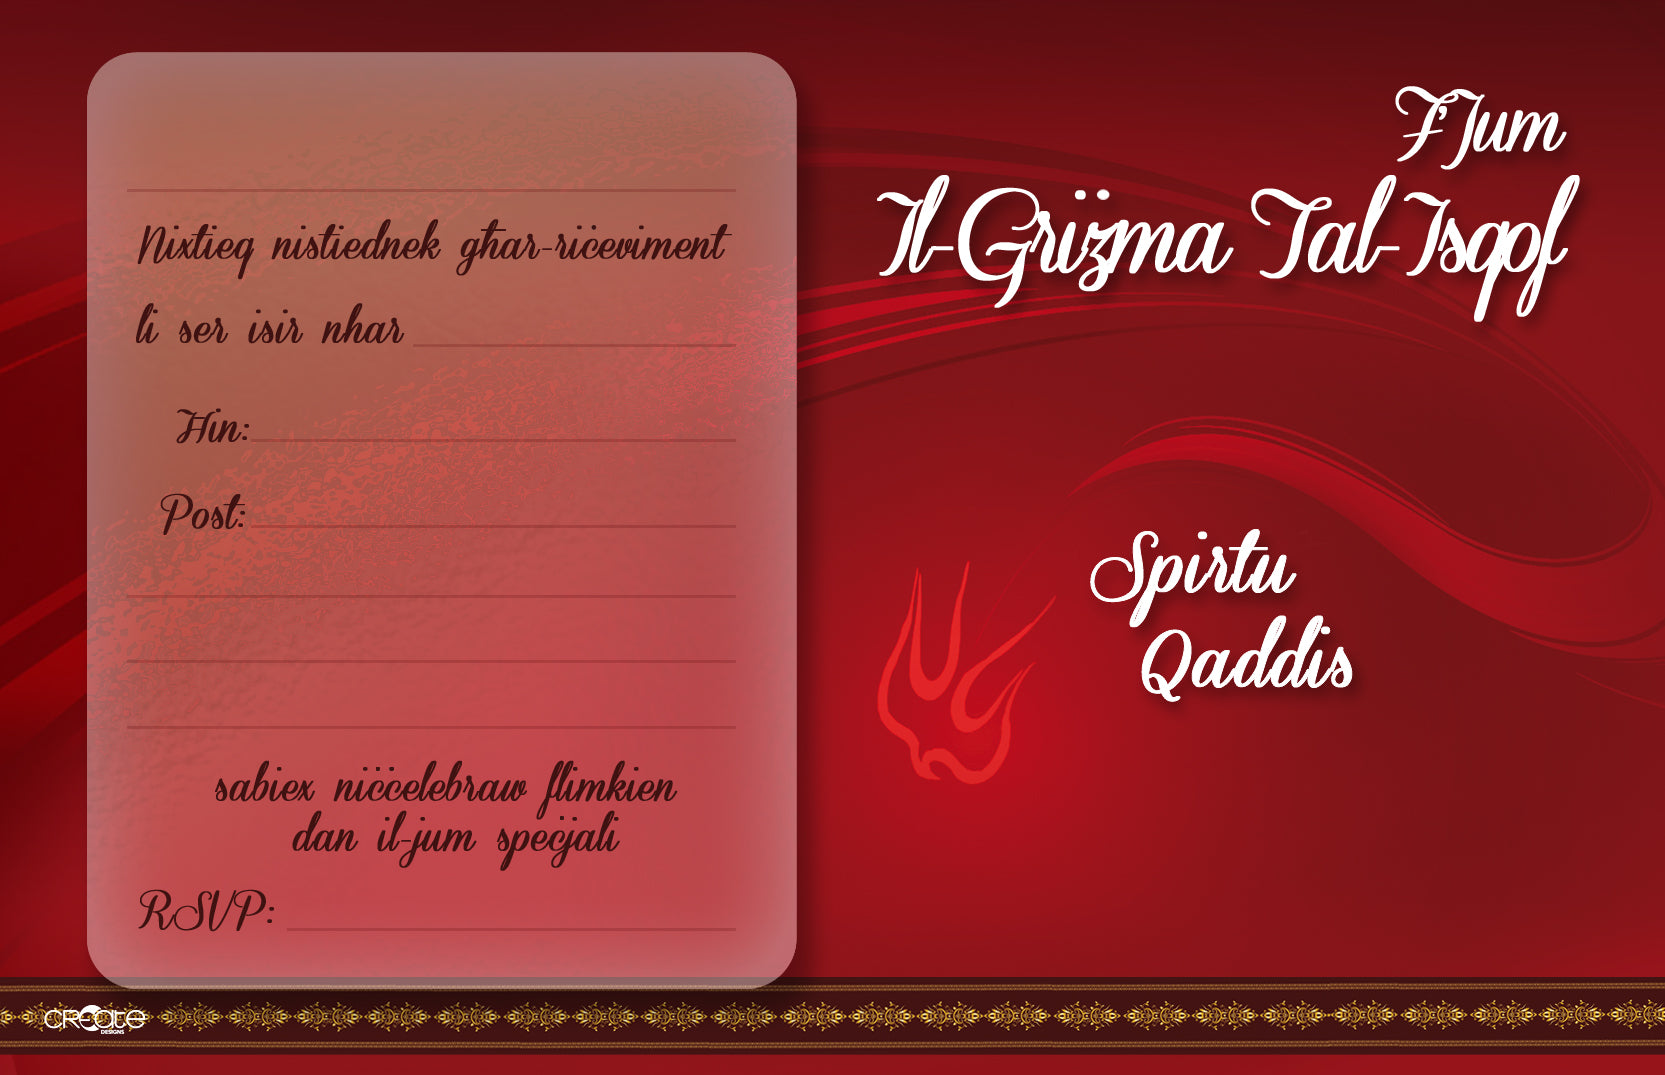 Nixtieq nistiednek għar-riċeviment
li ser isir nhar
Hin:
Post:
sabiex niċċelebraw flimkien
dan il-jum speċjali
RSVP:
CREATE
DESIGNS
F'Jum
Il-Griżma Tal-Isqof
Spirtu
Qaddis